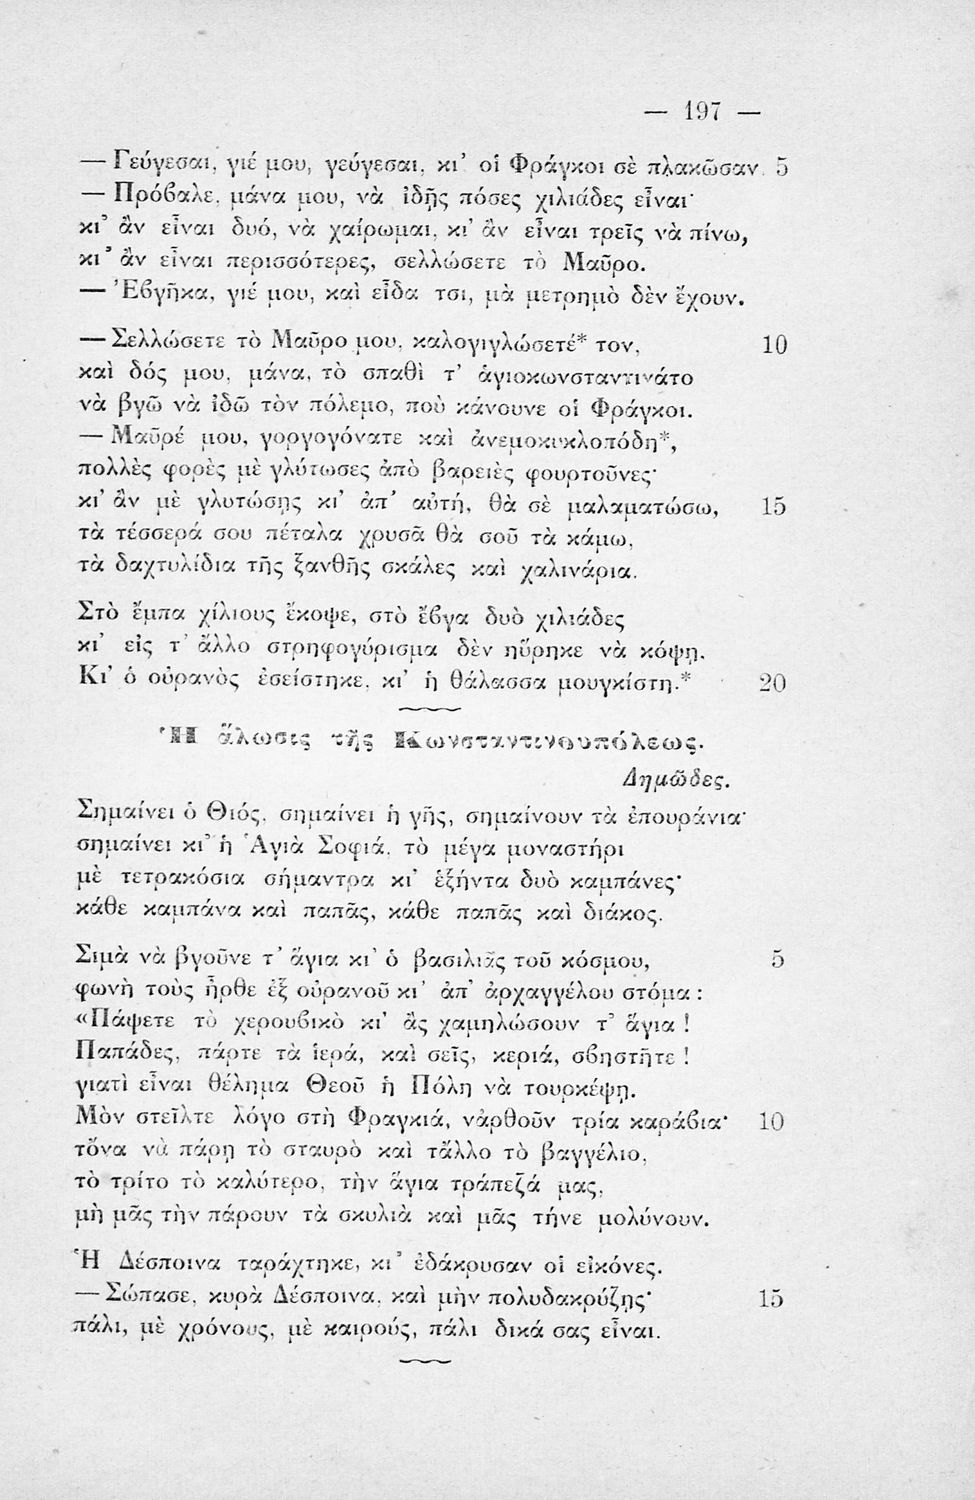 — 197 —
— Γεύγεσαι, γιέ μου, γεύγεσαι, κι' οἱ Φράγκοι σὲ πλακῶσαν. 5
— Πρόβαλε, μάνα μου, νὰ ἰδῇς πόσες χιλιάδες εἶναι·
κι' ἂν εἶναι δυό, νὰ χαίρωμαι, κι' ἂν εἶναι τρεῖς νὰ πίνω,
κι' ἂν εἶναι περισσότερες, σελλώσετε τὸ Μαῦρο.
— Ἐβγῆκα, γιέ μου, καὶ εἶδα τσι, μὰ μετρημὸ δὲν ἔχουν.
— Σελλώσετε τὸ Μαῦρο μου, καλογιγλώσετέ* τον, 10
καὶ δός μου, μάνα, τὸ σπαθὶ τ' ἁγιοκωνσταντινάτο
νὰ βγῶ νὰ ἰδῶ τὸν πόλεμο, ποὺ κάνουνε οἱ Φράγκοι.
— Μαῦρέ μου, γοργογόνατε καὶ ἀνεμοκυκλοπόδη*,
πολλὲς φορὲς μὲ γλύτωσες ἀπὸ βαρειὲς φουρτοῦνες·
κι' ἂν μὲ γλυτώσῃς κι' ἀπ' αὐτή, θὰ σὲ μαλαματώσω, 15
τὰ τέσσερά σου πέταλα χρυσᾶ θὰ σοῦ τὰ κάμω,
τὰ δαχτυλίδια τῆς ξανθῆς σκάλες καὶ χαλινάρια.
Στὸ ἔμπα χίλιους ἔκοψε, στὸ ἔβγα δυὸ χιλιάδες
κι' εἰς τ' ἄλλο στρηφογύρισμα δὲν ηὕρηκε νὰ κόψῃ.
Κι' ὁ οὐρανὸς ἐσείστηκε, κι' ἡ θάλασσα μουγκίστη.* 20
Ἡ ἅλωσις τῆς Κωνσταντινουπόλεως.
Δημῶδες.
Σημαίνει ὁ Θιός, σημαίνει ἡ γῆς, σημαίνουν τὰ ἐπουράνια·
σημαίνει κι' ἡ Ἁγιὰ Σοφιά, τὸ μέγα μοναστήρι
μὲ τετρακόσια σήμαντρα κι' ἑξήντα δυὸ καμπάνες·
κάθε καμπάνα καὶ παπᾶς, κάθε παπᾶς καὶ διάκος.
Σιμὰ νὰ βγοῦνε τ' ἅγια κι' ὁ βασιλιᾶς τοῦ κόσμου, 5
φωνὴ τοὺς ἦρθε ἐξ οὐρανοῦ κι' ἀπ' ἀρχαγγέλου στόμα :
«Πάψετε τὸ χερουβικὸ κι' ἂς χαμηλώσουν τ' ἅγια !
Παπάδες, πάρτε τὰ ἱερά, καὶ σεῖς, κεριά, σβηστῆτε !
γιατὶ εἶναι θέλημα Θεοῦ ἡ Πόλη νὰ τουρκέψῃ.
Μὸν στεῖλτε λόγο στὴ Φραγκιά, νἀρθοῦν τρία καράβια· 10
τὄνα νὰ πάρῃ τὸ σταυρὸ καὶ τἄλλο τὸ βαγγέλιο,
τὸ τρίτο τὸ καλύτερο, τὴν ἅγια τράπεζά μας,
μὴ μᾶς τὴν πάρουν τὰ σκυλιὰ καὶ μᾶς τήνε μολύνουν.
Ἡ Δέσποινα ταράχτηκε, κι' ἐδάκρυσαν οἱ εἰκόνες.
— Σώπασε, κυρὰ Δέσποινα, καὶ μὴν πολυδακρύζῃς· 15
πάλι, μὲ χρόνους, μὲ καιρούς, πάλι δικά σας εἶναι.